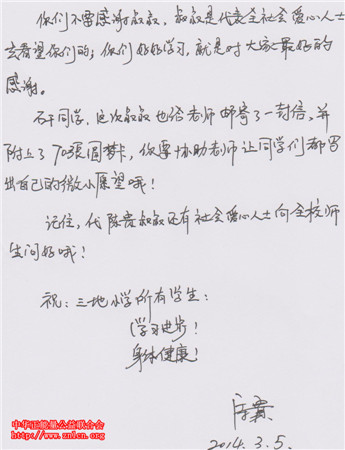 你们不需感谢叔叔，叔叔是代表全社会爱心人士
去看望你们的；你们好好学习，就是对大家最好的
感谢。
同学，这次叔叔也给老师邮寄了一封信，并
附上了70张圆梦卡，你要协助老师让同学们都写
出自己的微小愿望哦！
记住，代陈亮叔叔还有社会爱心人士向全校师
生问好哦！
祝：三地小学所有学生：
学习进步！
身体健康！
2014.3.5.
中华正能量公益联合会
http://www.znlcn.org